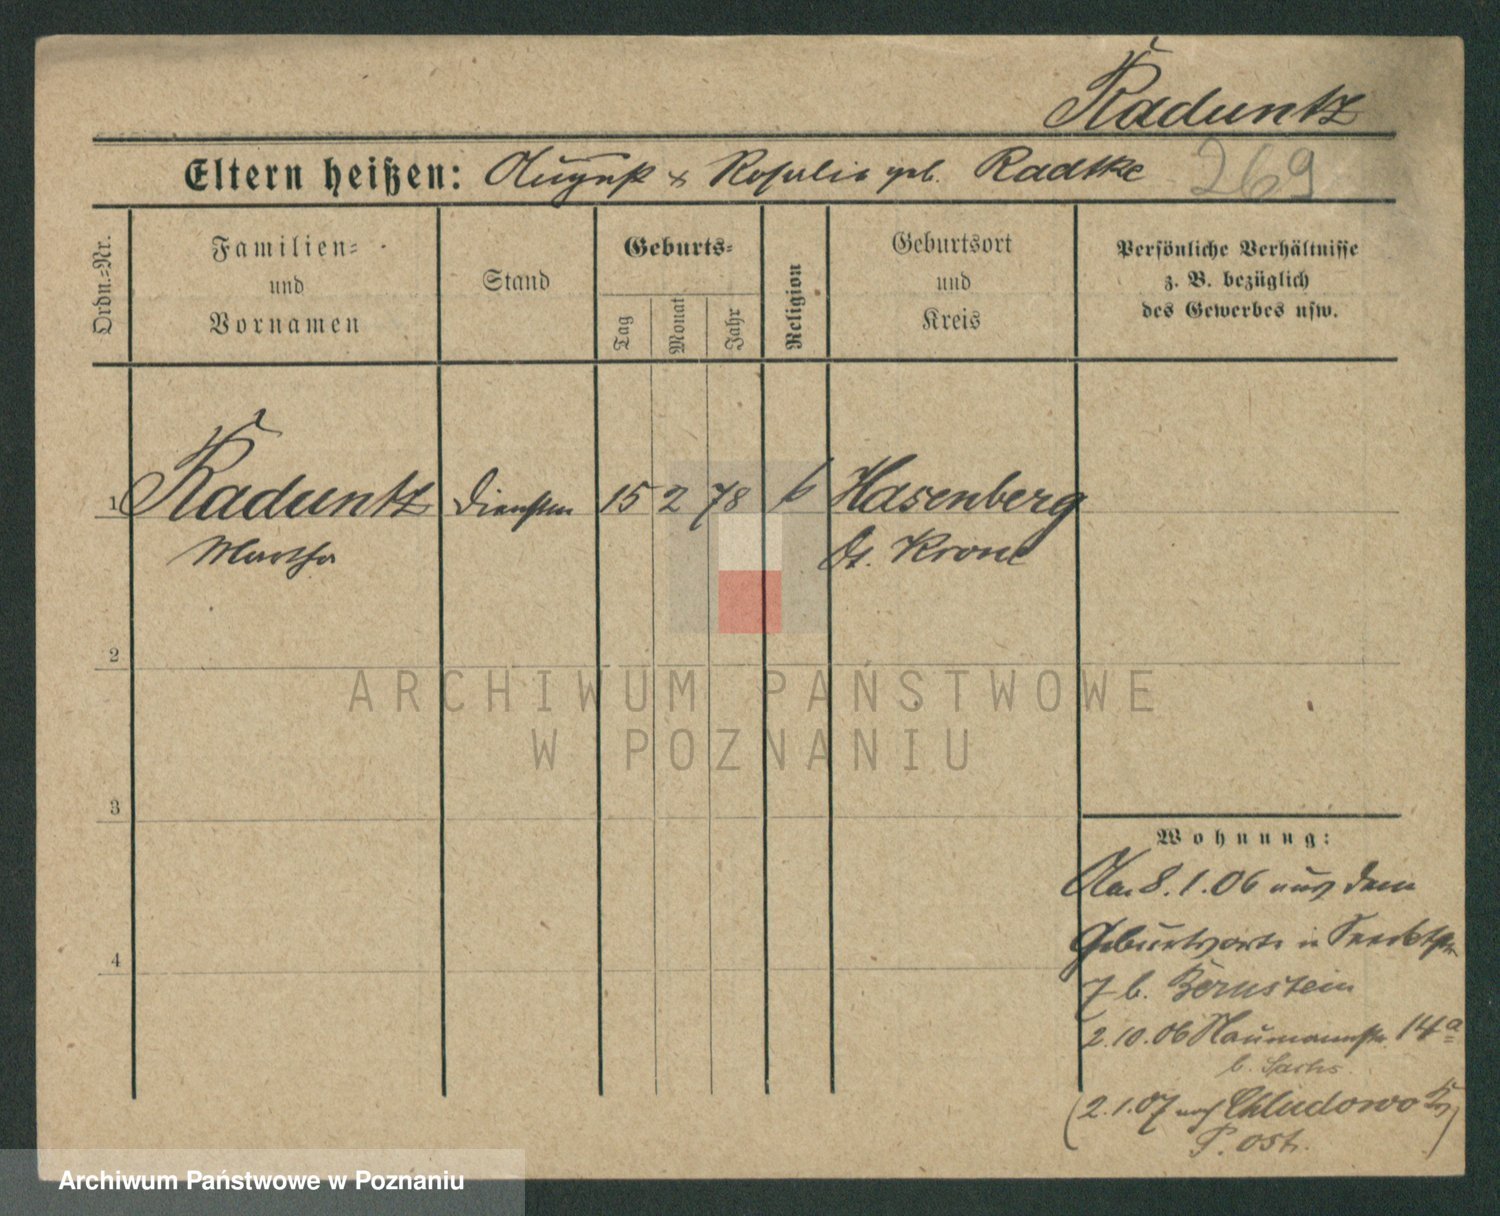 Raduntz
Eltern heißen: August & Rosalie geb. Radtke 269
Ordn.-Nr.
Familien-
und
Vornamen
Stand
Geburts-
Tag
Monat
Jahr
Religion
Geburtsort
und
Kreis
Persönliche Verhältnisse
z. B. bezüglich
des Gewerbes usw.
1 Raduntz 15 2 78 Hasenberg
Martha Dt. Krone
2
3
4
Wohnung:
8.1.06 aus dem
Geburtsorte
7 b. Bernstein
2.10.06 Naumannstr. 14a
b. Sachs.
(2.1.07 nach Chludowo
P. Ost.)
ARCHIWUM PAŃSTWOWE
W POZNANIU
Archiwum Państwowe w Poznaniu